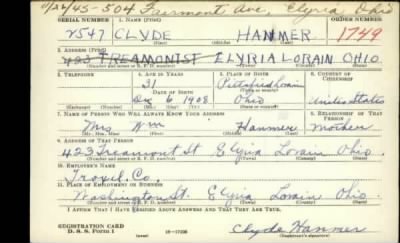 11/26/45-504 Fairmont Ave, Elyria Ohio
SERIAL NUMBER 1. NAME (Print) ORDER NUMBER
2547 CLYDE HAMMER 1749
2. ADDRESS (Print)
423 TREAMONTST ELYRIA LORAIN OHIO
3. TELEPHONE 4. AGE IN YEARS 5. PLACE OF BIRTH 6. COUNTRY OF CITIZENSHIP
31 Pittsfield Lorain
DATE OF BIRTH
Dec 6 1908 Ohio United States
7. NAME OF PERSON WHO WILL ALWAYS KNOW YOUR ADDRESS 8. RELATIONSHIP OF THAT PERSON
Mrs Wm Hammer mother
9. ADDRESS OF THAT PERSON
423 Treamont St Elyria Lorain Ohio.
10. EMPLOYER'S NAME
Troxel Co.
11. PLACE OF EMPLOYMENT OR BUSINESS
Washington St. Elyria Lorain Ohio.
I AFFIRM THAT I HAVE VERIFIED ABOVE ANSWERS AND THAT THEY ARE TRUE.
REGISTRATION CARD
D. S. S. Form 1 16-17105 Clyde Hammer